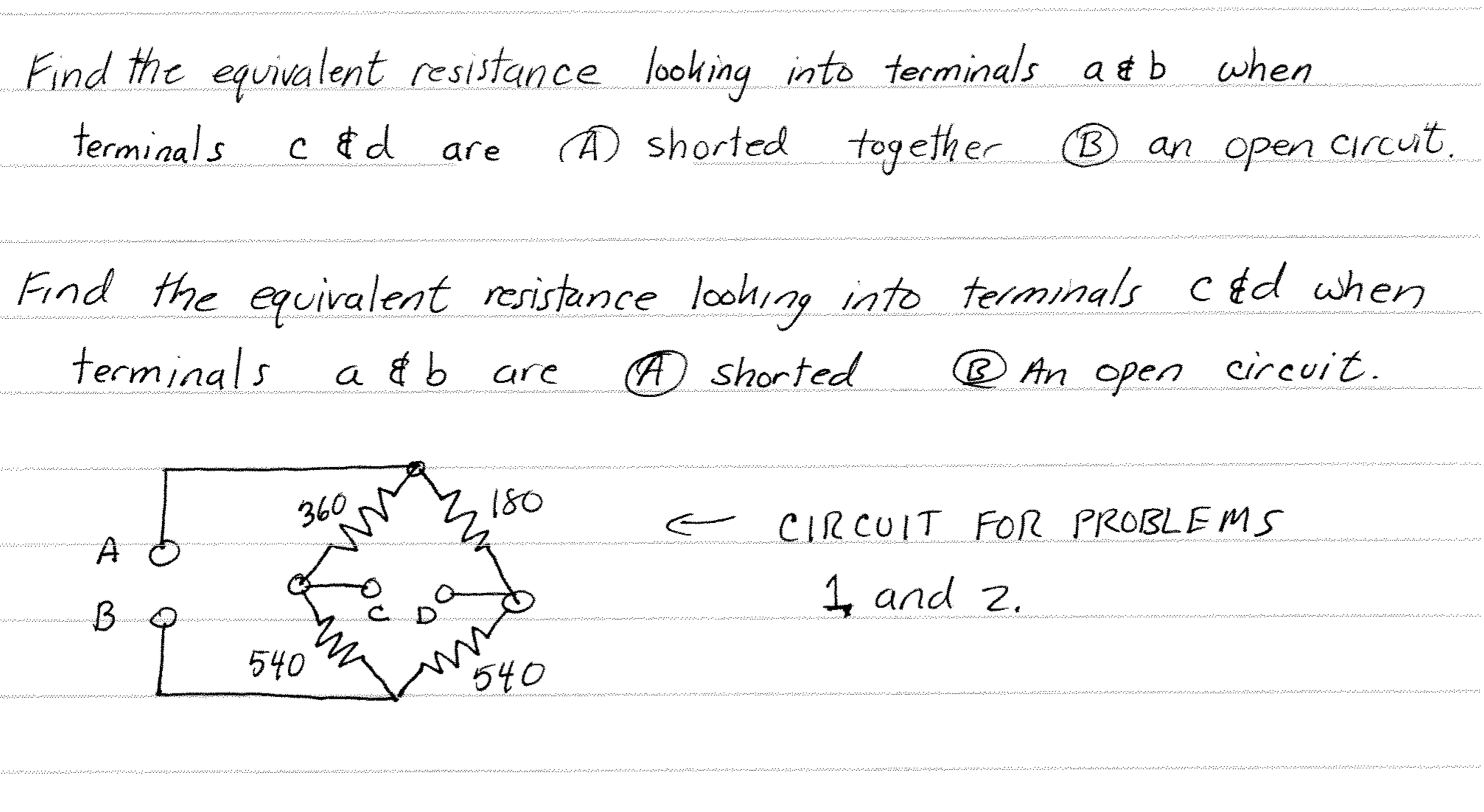 Find the equivalent resistance looking into terminals a & b when
terminals c & d are Ⓐ shorted together Ⓑ an open circuit.
Find the equivalent resistance looking into terminals c & d when
terminals a & b are Ⓐ shorted Ⓑ An open circuit.
360 180
← CIRCUIT FOR PROBLEMS
A
C D
1 and 2.
B
540 540